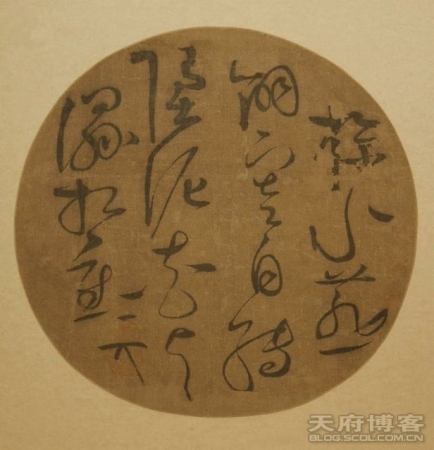 掠水燕
翎寒自轉
墮泥花片
濕相重
天府博客
BLOG.SCOL.COM.CN